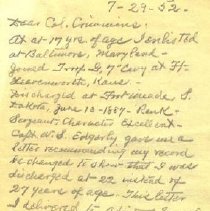 7-29-52.
Dear Col.
At 17 yrs of age I enlisted
at Baltimore, Maryland -
Joined Troop G, 7 Cavy at Ft-
Leavenworth, Kans. -
Discharged at Fort Meade S.
Dakota, June 10-1887- Rank-
Sergeant. Character Excellent -
Capt. W. S. Edgerly gave me a
letter recommending my record
be changed to show that I was
discharged at 22 instead of
27 years of age. This letter
I delivered to